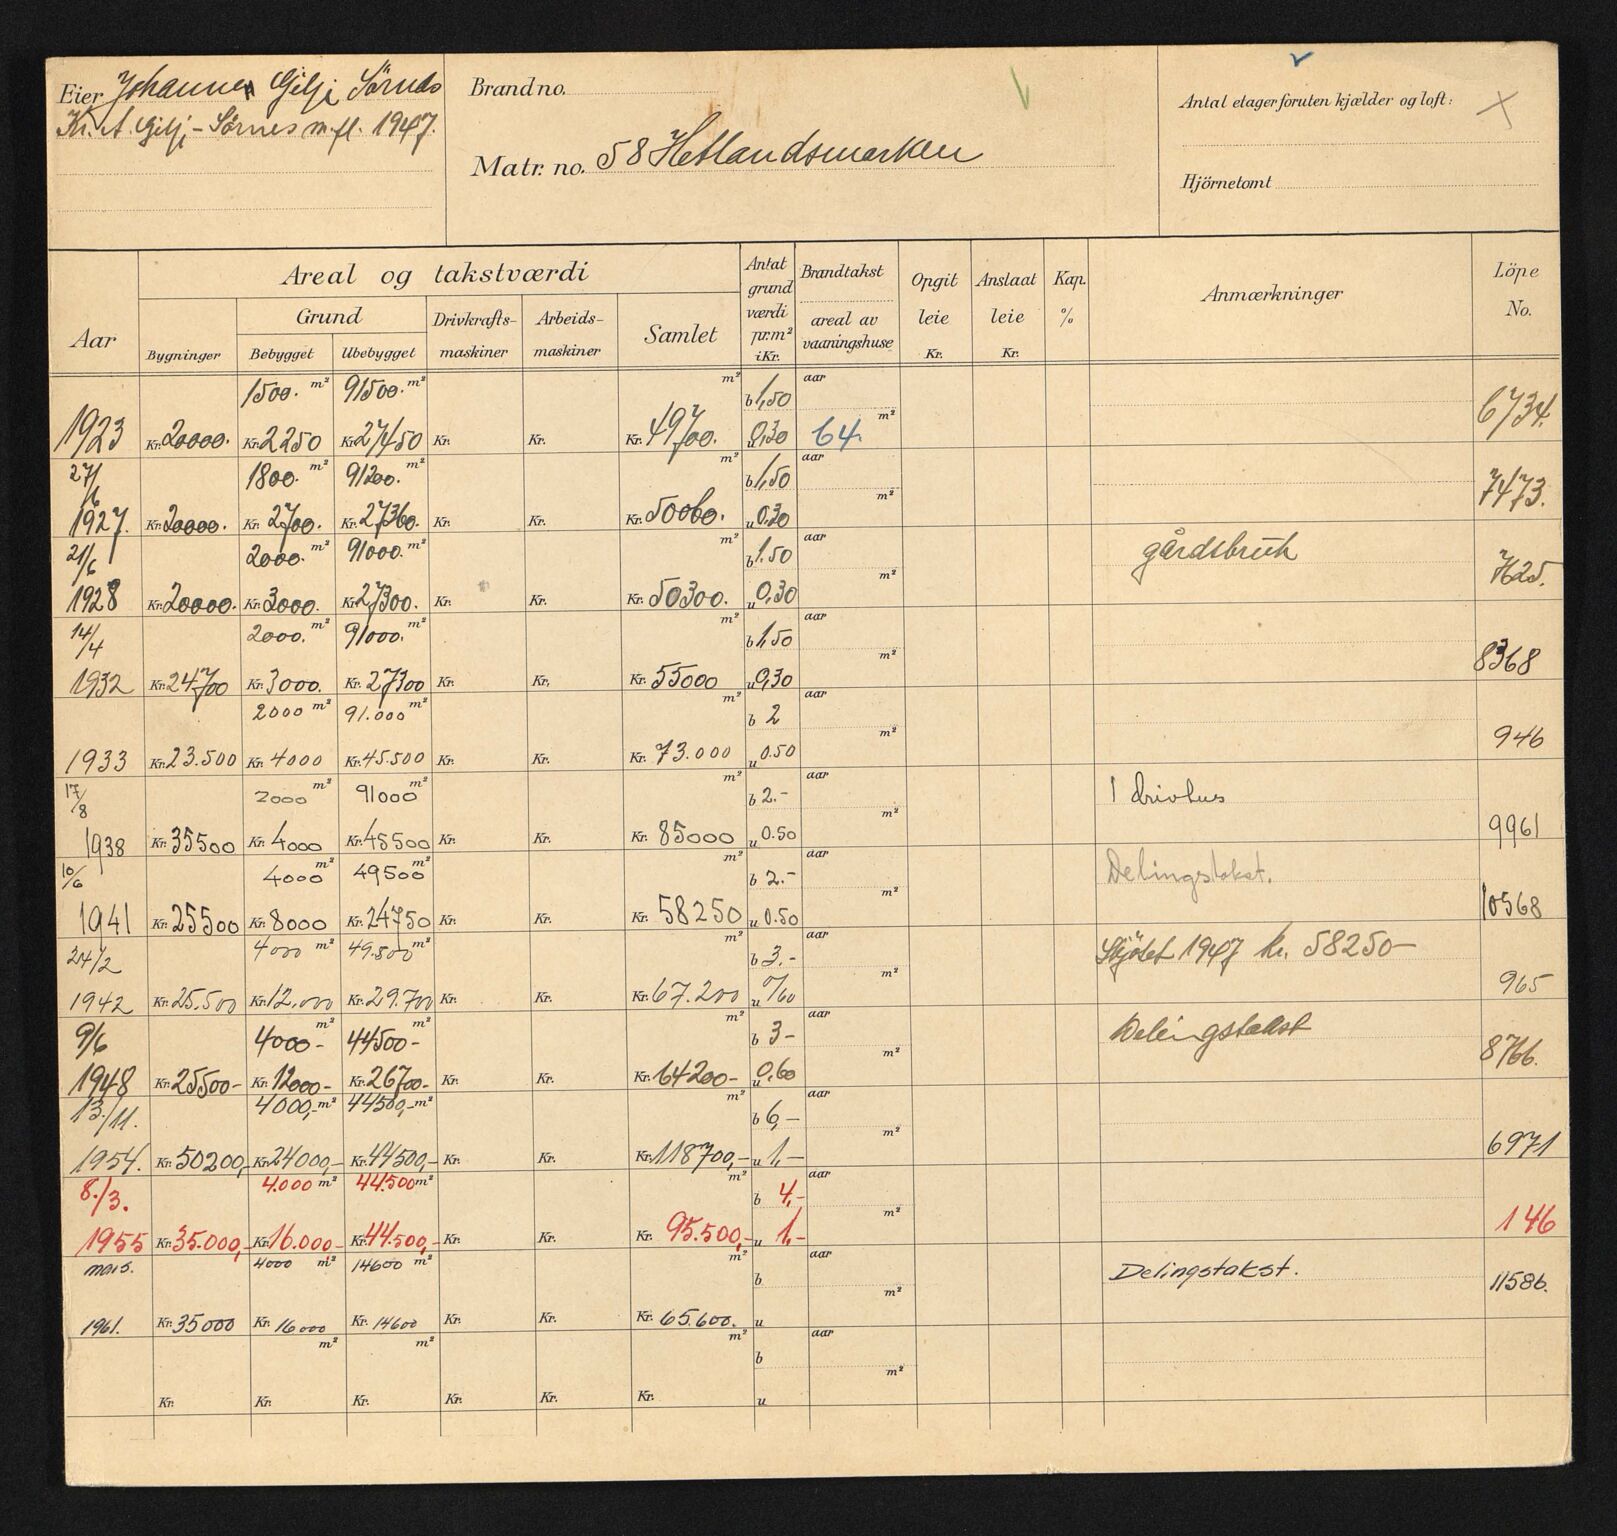 Eier Johannes Gilje Sörnes
Kr. A. Gilje - Sörnes m.fl. 1947.
Brand no.
Matr. no. 58 Hetlandsmarken
Antal etager foruten kjælder og loft:
Hjörnetomt
Aar
Areal og takstværdi
Bygninger
Grund
Bebygget Ubebygget
Drivkrafts-
maskiner
Arbeids-
maskiner
Samlet
Antat
grund
værdi
pr.m²
i Kr.
Brandtakst
areal av
vaaningshuse
Opgit
leie
Kr.
Anslaat
leie
Kr.
Kap.
%
Anmærkninger
Löpe
No.
1500. m² 91500. m² m² b 1,50 aar
1923 Kr. 20000. Kr. 2250 Kr. 27450 Kr. Kr. Kr. 49700. u 0,30 64. m² 6734.
27/6 1800. m² 91200. m² m² b 1,50 aar
1927. Kr. 20000. Kr. 2700. Kr. 27360. Kr. Kr. Kr. 50060. u 0,30 m² 7473.
21/6 2000. m² 91000. m² m² b 1.50 aar gårdsbruk
1928 Kr. 20000. Kr. 3000. Kr. 27300. Kr. Kr. Kr. 50300. u 0,30 m² 7625.
14/4 2000. m² 91000. m² m² b 1,50 aar
1932 Kr. 24700 Kr. 3000. Kr. 27300 Kr. Kr. Kr. 55000 u 0,30 m² 8368
2000 m² 91.000 m² m² b 2 aar
1933 Kr. 23.500 Kr. 4000 Kr. 45.500 Kr. Kr. Kr. 73.000 u 0.50 m² 946
17/8 2000 m² 91000 m² m² b 2.- aar 1 drivhus
1938 Kr. 35500 Kr. 4000 Kr. 45500 Kr. Kr. Kr. 85000 u 0.50 m² 9961
10/6 4000 m² 49500 m² m² b 2.- aar Delingstakst.
1941 Kr. 25500 Kr. 8000 Kr. 24750 Kr. Kr. Kr. 58250 u 0.50 m² 10568
24/2 4000 m² 49.500 m² m² b 3.- aar Skjötet 1947 kr. 58250-
1942 Kr. 25.500 Kr. 12.000 Kr. 29.700 Kr. Kr. Kr. 67.200 u "/60 m² 965
9/6 4000- m² 44500- m² m² b 3- aar Delingstakst
1948 Kr. 25500- Kr. 12000- Kr. 26700- Kr. Kr. Kr. 64200- u 0,60 m² 8766.
13./11. 4000,- m² 44500,- m² m² b 6,- aar
1954. Kr. 50200,- Kr. 24000,- Kr. 44500,- Kr. Kr. Kr. 118700,- u 1,- m² 6971
8./3. 4.000 m² 44.500 m² m² b 4,- aar
1955 Kr. 35.000,- Kr. 16.000,- Kr. 44.500,- Kr. Kr. Kr. 95.500,- u 1,- m² 146
mars. 4000 m² 14600 m² m² b aar Delingstakst.
1961. Kr. 35000 Kr. 16000 Kr. 14600 Kr. Kr. Kr. 65.600. u m² 11586.
m² m² m² b aar
Kr. Kr. Kr. Kr. Kr. Kr. u m²